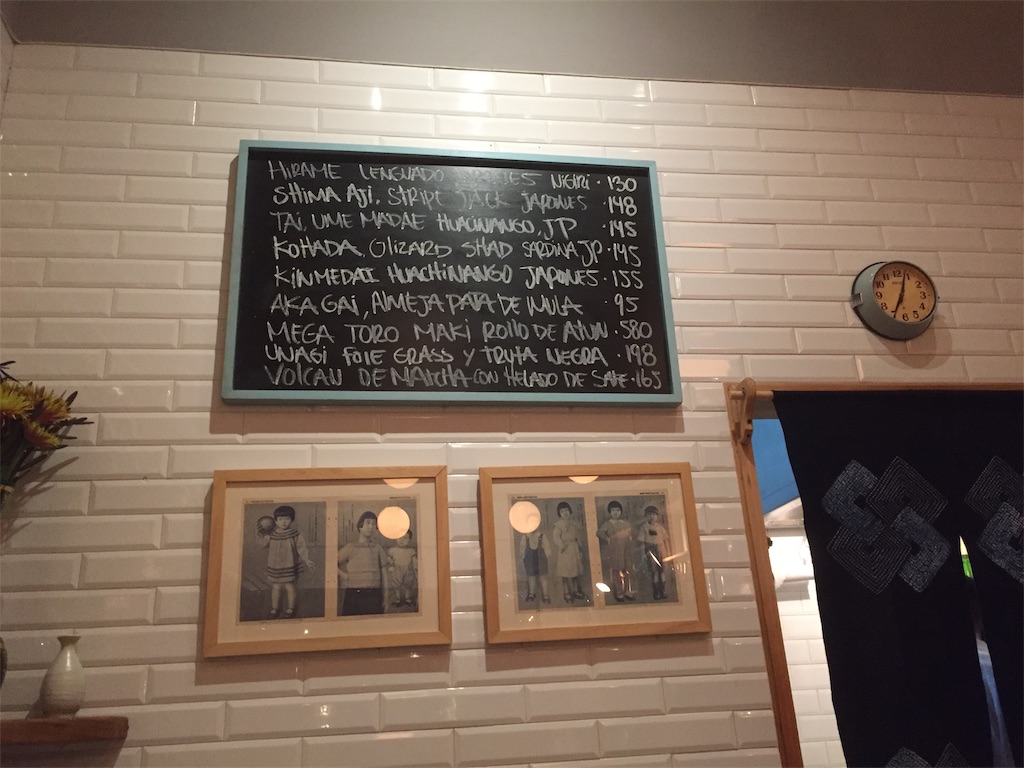 HIRAME LENGUADO JAPONES NIGIRI · 130
SHIMA AJI, STRIPE JACK JAPONES · 148
TAI, UME MADAE HUACHINANGO, JP · 145
KOHADA, GIZARD SHAD SARDINA JP · 145
KINMEDAI HUACHINANGO JAPONES · 155
AKAGAI, ALMEJA PATA DE MULA · 95
MEGA TORO MAKI ROLLO DE ATUN · 580
UNAGI FOIE GRASS Y TRUFA NEGRA · 198
VOLCAN DE MATCHA CON HELADO DE SAKE · 165
12
1
2
3
4
5
6
7
8
9
10
11